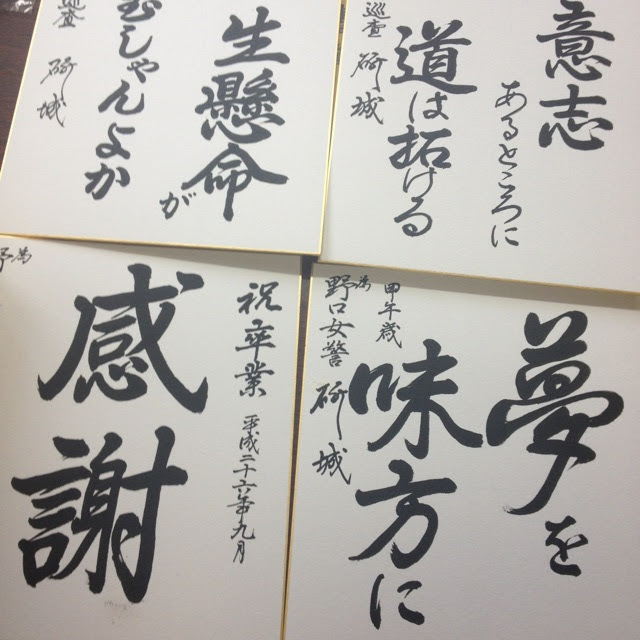 意志
あるところに
道は拓ける
巡査 城
生懸命が
むしゃんよか
巡査 城
夢を
味方に
甲午歳
為
野口女警 城
祝卒業
平成二十六年九月
感謝
為